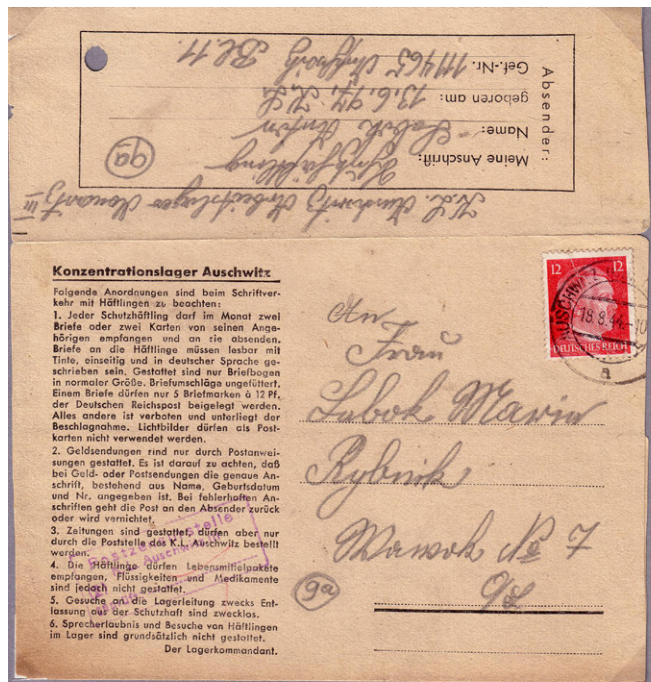 K.L. Auschwitz Arbeitslager Monowitz III
Absender:
Meine Anschrift: Schutzhäftling 9a
Name: Labok Anton
geboren am: 13.6.97, K.L.
Gef.-Nr. 111465 Auschwitz Bl. 11
Konzentrationslager Auschwitz
Folgende Anordnungen sind beim Schriftver-
kehr mit Häftlingen zu beachten:
1. Jeder Schutzhäftling darf im Monat zwei
Briefe oder zwei Karten von seinen Ange-
hörigen empfangen und an sie absenden.
Briefe an die Häftlinge müssen lesbar mit
Tinte, einseitig und in deutscher Sprache ge-
schrieben sein. Gestattet sind nur Briefbogen
in normaler Größe. Briefumschläge ungefüttert.
Einem Briefe dürfen nur 5 Briefmarken à 12 Pf.
der Deutschen Reichspost beigelegt werden.
Alles andere ist verboten und unterliegt der
Beschlagnahme. Lichtbilder dürfen als Post-
karten nicht verwendet werden.
2. Geldsendungen sind nur durch Postanwei-
sungen gestattet. Es ist darauf zu achten, daß
bei Geld- oder Postsendungen die genaue An-
schrift, bestehend aus Name, Geburtsdatum
und Nr. angegeben ist. Bei fehlerhaften An-
schriften geht die Post an den Absender zurück
oder wird vernichtet.
3. Zeitungen sind gestattet, dürfen aber nur
durch die Poststelle des K.L. Auschwitz bestellt
werden.
4. Die Häftlinge dürfen Lebensmittelpakete
empfangen, Flüssigkeiten und Medikamente
sind jedoch nicht gestattet.
5. Gesuche an die Lagerleitung zwecks Ent-
lassung aus der Schutzhaft sind zwecklos.
6. Sprecherlaubnis und Besuche von Häftlingen
im Lager sind grundsätzlich nicht gestattet.
Der Lagerkommandant.
Postzensurstelle
Auschwitz
12 12
DEUTSCHES REICH
AUSCHWITZ
18.8.44.-10
a
An
Frau
Labok Maria
Rybnik
Wawok № 7
O/S
9a